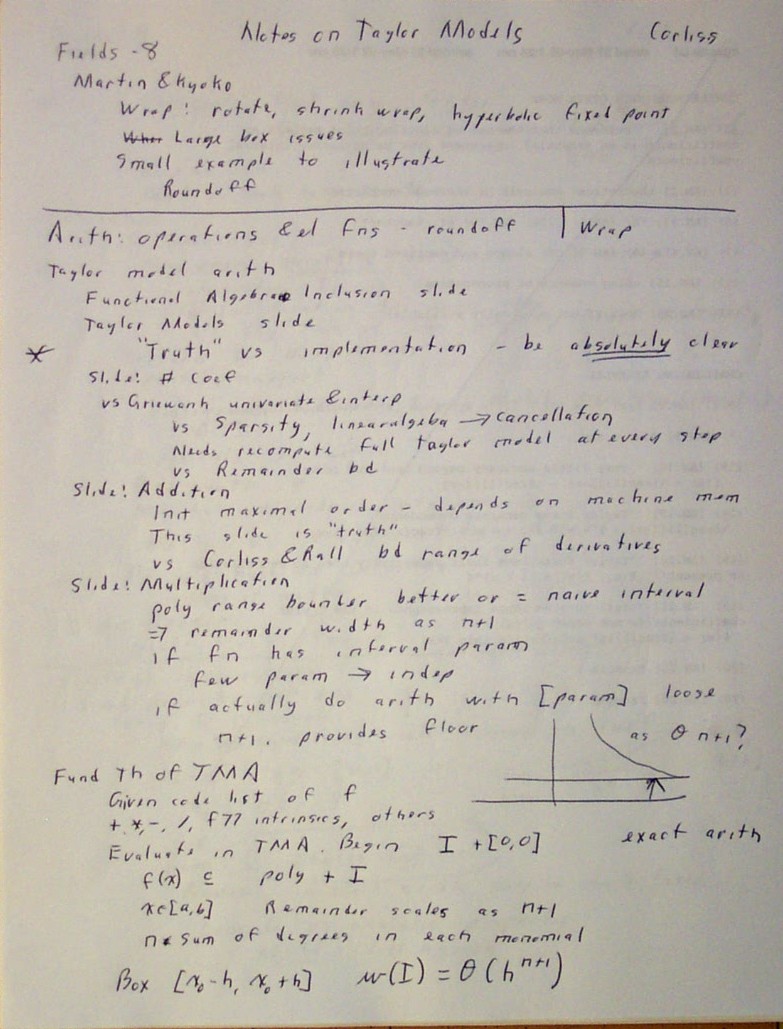 Notes on Taylor Models Corliss
Fields -8
Martin & Kyoko
Wrap: rotate, shrink wrap, hyperbolic fixed point
Large box issues
Small example to illustrate
Roundoff
Arith: operations & el Fns - roundoff | Wrap
Taylor model arith
Functional Algebra Inclusion slide
Taylor Models slide
* "Truth" vs implementation - be absolutely clear
Slide: # coef
vs Griewank univariate & interp
vs Sparsity, linear algebra → cancellation
Needs recompute full taylor model at every step
vs Remainder bd
Slide: Addition
Init maximal order - depends on machine mem
This slide is "truth"
vs Corliss & Rall bd range of derivatives
Slide: Multiplication
poly range bounder better or = naive interval
⇒ remainder width as n+1
if fn has interval param
few param → indep
if actually do arith with [param] loose
n+1. provides floor as θ n+1?
Fund Th of TMA
Given code list of f
+, *, -, /, f77 intrinsics, others
exact arith
Evaluate in TMA. Begin I + [0,0]
f(x) ⊆ poly + I
x∈[a,b] Remainder scales as n+1
n sum of degrees in each monomial
Box [x₀-h, x₀+h] w(I) = θ(hⁿ⁺¹)